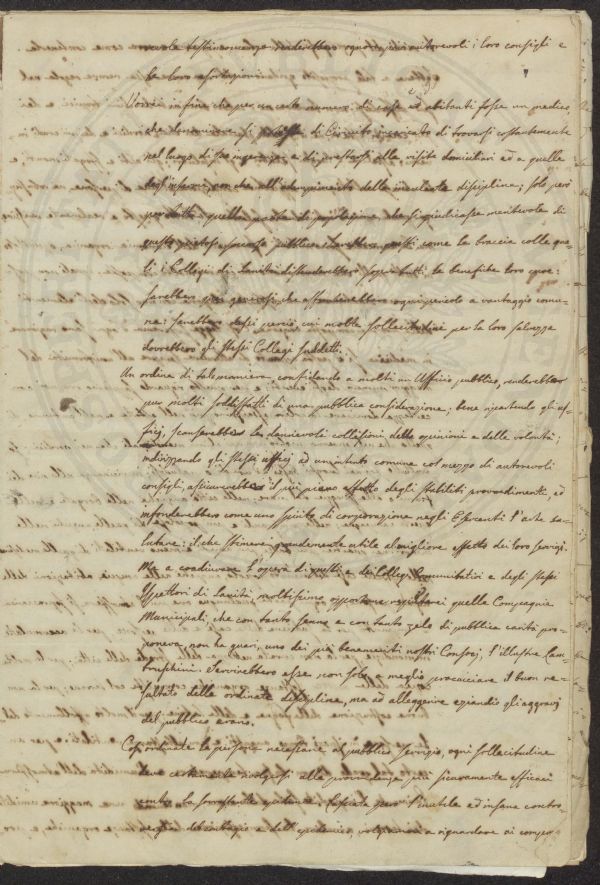 revole testimonianza renderebbero ognora più autorevoli i loro consigli e
le loro esortazioni.
Vorrei infine che per un certo numero di case e di abitanti fosse un medico,
che denominerei di Circuito, incaricato di trovarsi costantemente
nel luogo di sue ingerenze e di prestarsi alle visite domiciliari ed a quelle
degl'infermi, non che all'adempimento delle inculcate discipline; solo però
quella di popolazione che si giudicasse meritevole di
questo pietoso soccorso pubblico. Sarebbero questi come le braccia colle qua-
li i Collegi di Sanità distenderebbero sopra tutti le benefiche loro cure:
sarebbero generosi che affronterebbero ogni pericolo a vantaggio comu-
ne: sarebbero dessi perciò, cui molta sollecitudine per la loro salvezza
dovrebbero gli stessi Collegi suddetti.
Un ordine di tale maniera, confidando a molti un Ufficio pubblico, renderebbe
pur molti soddisfatti di una pubblica considerazione; bene ripartendo gli uf-
ficj, scanserebbe le dannevoli collisioni delle opinioni e delle volontà;
indirizzando gli stessi ufficj ad un intento comune col mezzo di autorevoli
consigli, assicurerebbe il più pieno effetto degli stabiliti provvedimenti, ed
infonderebbe come uno spirito di corporazione negli Esercenti l'arte sa-
lutare: il che stimerei grandemente utile al migliore effetto dei loro servigi.
Ma a coadiuvare l'opera di questi e dei Collegi Comunitativi e degli stessi
Ispettori di Sanità, moltissimo opportune quelle Compagnie
Municipali, che con tanto senno e con tanto zelo di pubblica carità pro-
poneva, non ha guari, uno dei più benemeriti nostri Consocj, l'illustre Lam-
bruschini. Servirebbero esse non solo a meglio procacciare il buon re-
sultato delle ordinate discipline, ma ad alleggerire eziandio gli aggravj
del pubblico erario.
Così ordinate le persone necessarie al pubblico servigio, ogni sollecitudine
deve certamente rivolgersi alle provvidenze più sicuramente efficaci
contro la sovrastante epidemia. Lasciata però l'inutile ed insana contro-
versia del contagio e dell'epidemico, volgiamoci a riguardare ai compo-